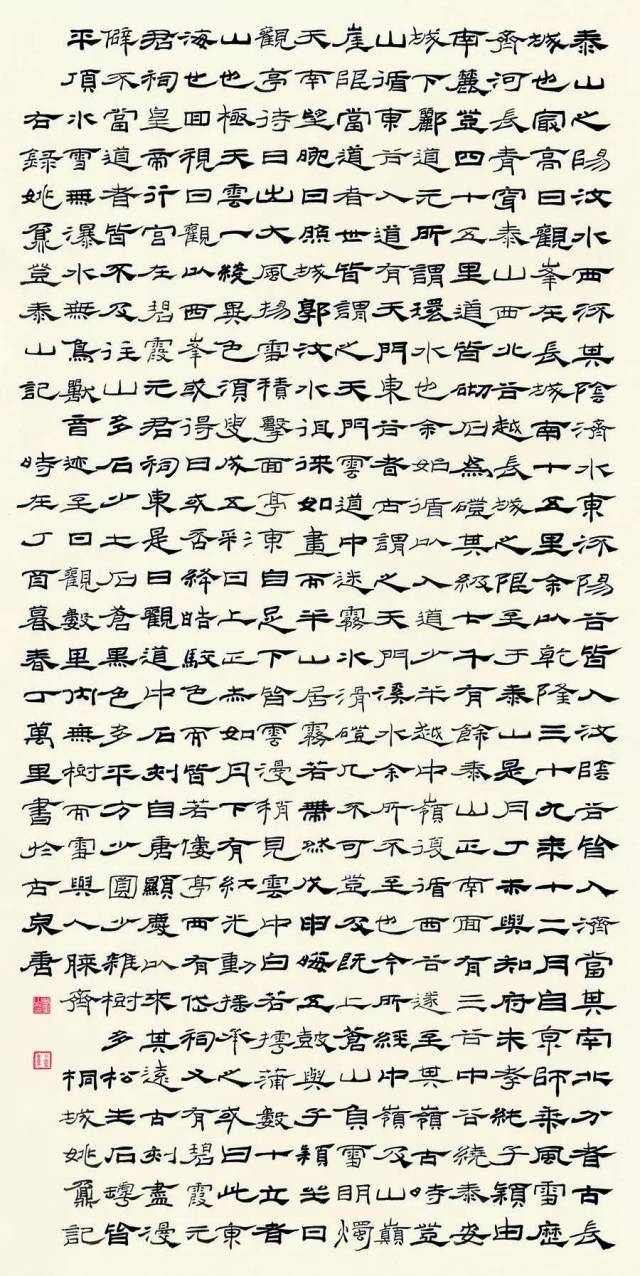 泰山之陽汶水西流其陰濟水東流陽谷皆入汶陰谷皆入濟當其南北分者古長
城也最高日觀峯在長城南十五里余以乾隆三十九年十二月自京師乘風雪歷
齊河長青穿泰山西北谷越長城之限至于泰山是月丁未與知府朱孝純子穎由
南麓登四十五里道皆砌石為磴其級七千有餘泰山正南面有三谷中谷繞泰安
城下酈道元所謂環水也余始循以入道少半越中嶺復循西谷遂至其嶺古時登
山循東谷入道有天門東谷者古謂之天門溪水余所不至也今所經中嶺及山巔
崖限當道者世皆謂之天門雲道中迷霧冰滑磴几不可登及既上蒼山負雪明燭
天南望晚日照城郭汶水徂徠如畫而半山居霧若帶然戊申晦五鼓與子穎坐日
觀亭待日出大風揚雪積擊面亭東自足下皆雲漫稍見雲中白若摴蒲數十立者
山也極天雲一綫異色須臾成五采日上正赤如丹下有紅光動搖承之或曰此東
海世回視日觀以西峯或得日或否絳皓駁色而皆若僂亭西有岱祠又有碧霞元
君祠皇帝行宮在碧霞元君祠東是日觀道中石刻自唐顯慶以來其遠古刻盡漫
僻不當道者皆不及往山多石少土石蒼黑色多平方少圓少雜樹多松生石罅皆
平頂冰雪無瀑水無鳥獸音迹至日觀數里內無樹而雪與人膝齊桐城姚鼐記
右錄姚鼐登泰山記時在丁酉暮春丁萬里書於古泉唐